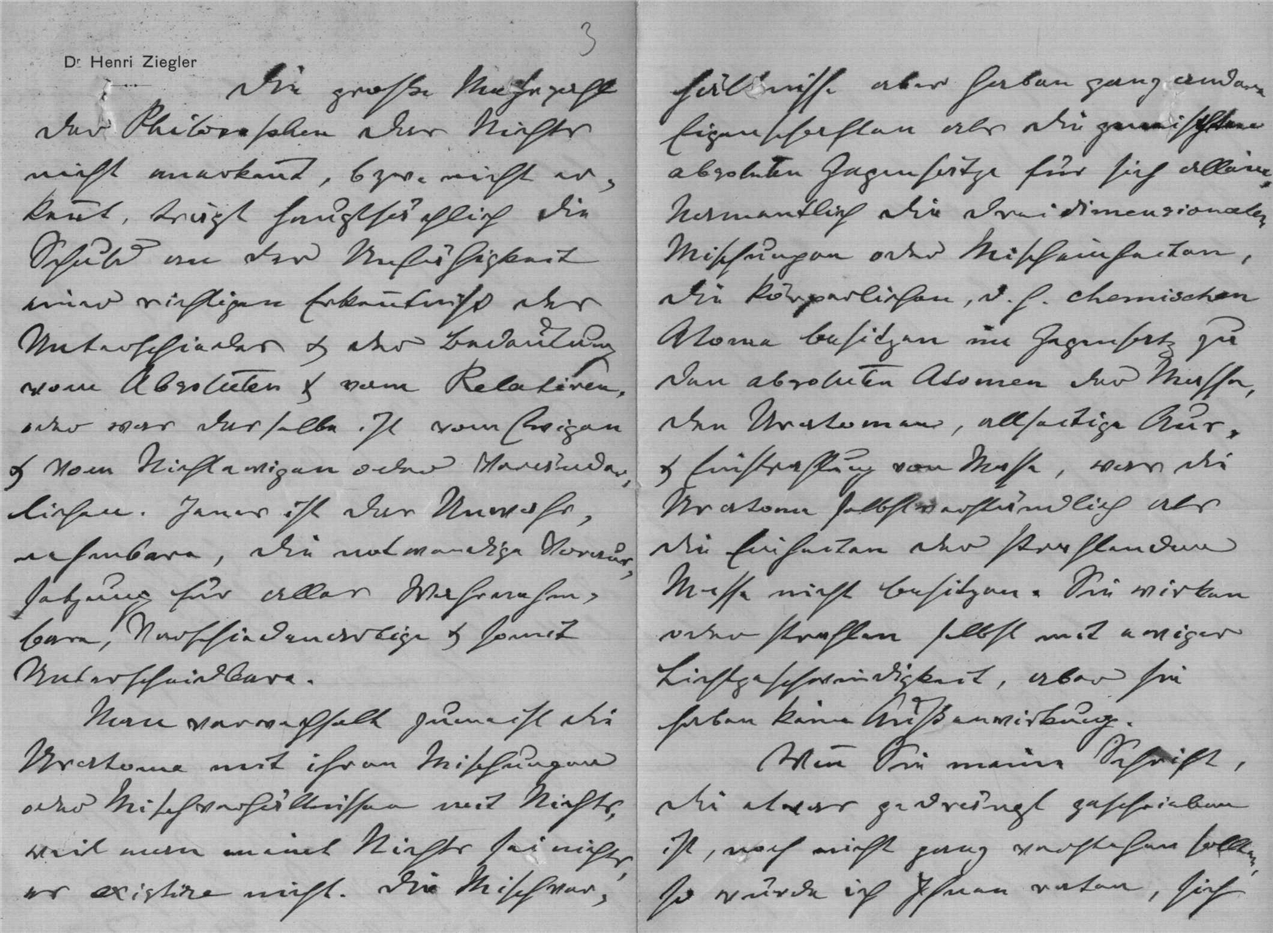 3
Dr Henri Ziegler
Die große Mehrzahl
der Philosophen das Nichts
nicht anerkent, bzw. nicht er-
kent, trägt hauptsächlich die
Schuld an der Unfähigkeit
einer richtigen Erkentniß des
Unterschiedes & der Bedeutung
vom Absoluten & vom Relativen,
oder was dasselbe ist vom Ewigen
& vom Nichtewigen oder Veränder-
lichen. Jenes ist das Unwahr-
nehmbare, die notwendige Voraus-
setzung für alles Wahrnehm-
bare, Verschiedenartige & somit
Unterscheidbare.
Man verwechselt zumeist die
Uratome mit ihren Mischungen
oder Mischverhältnissen mit Nichts,
weil man meint Nichts sei nichts,
es existire nicht. Die Mischver-
hältnisse aber haben ganz andere
Eigenschaften als die
absoluten Gegensätze für sich allein,
Namentlich die dreidimensionalen
Mischungen oder Mischeinheiten,
die körperlichen, d. h. chemischen
Atome besitzen im Gegensatz zu
den absoluten Atomen der Masse,
den Uratomen, allseitige Aus-
& Einstrahlung von Masse, was die
Uratome selbstverständlich als
die Einheiten der strahlenden
Masse nicht besitzen. Sie wirken
oder strahlen selbst mit ewiger
Lichtgeschwindigkeit, aber sie
haben keine Außenwirkung.
Wen Sie meine Schrift,
die etwas gedrängt geschrieben
ist, noch nicht ganz verstehen sollten,
so würde ich Ihnen raten, sich